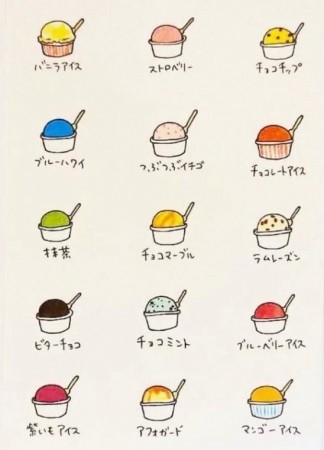 バニラアイス
ストロベリー
チョコチップ
ブルーハワイ
つぶつぶイチゴ
チョコレートアイス
抹茶
チョコマーブル
ラムレーズン
ビターチョコ
チョコミント
ブルーベリーアイス
紫いもアイス
アフォガード
マンゴーアイス